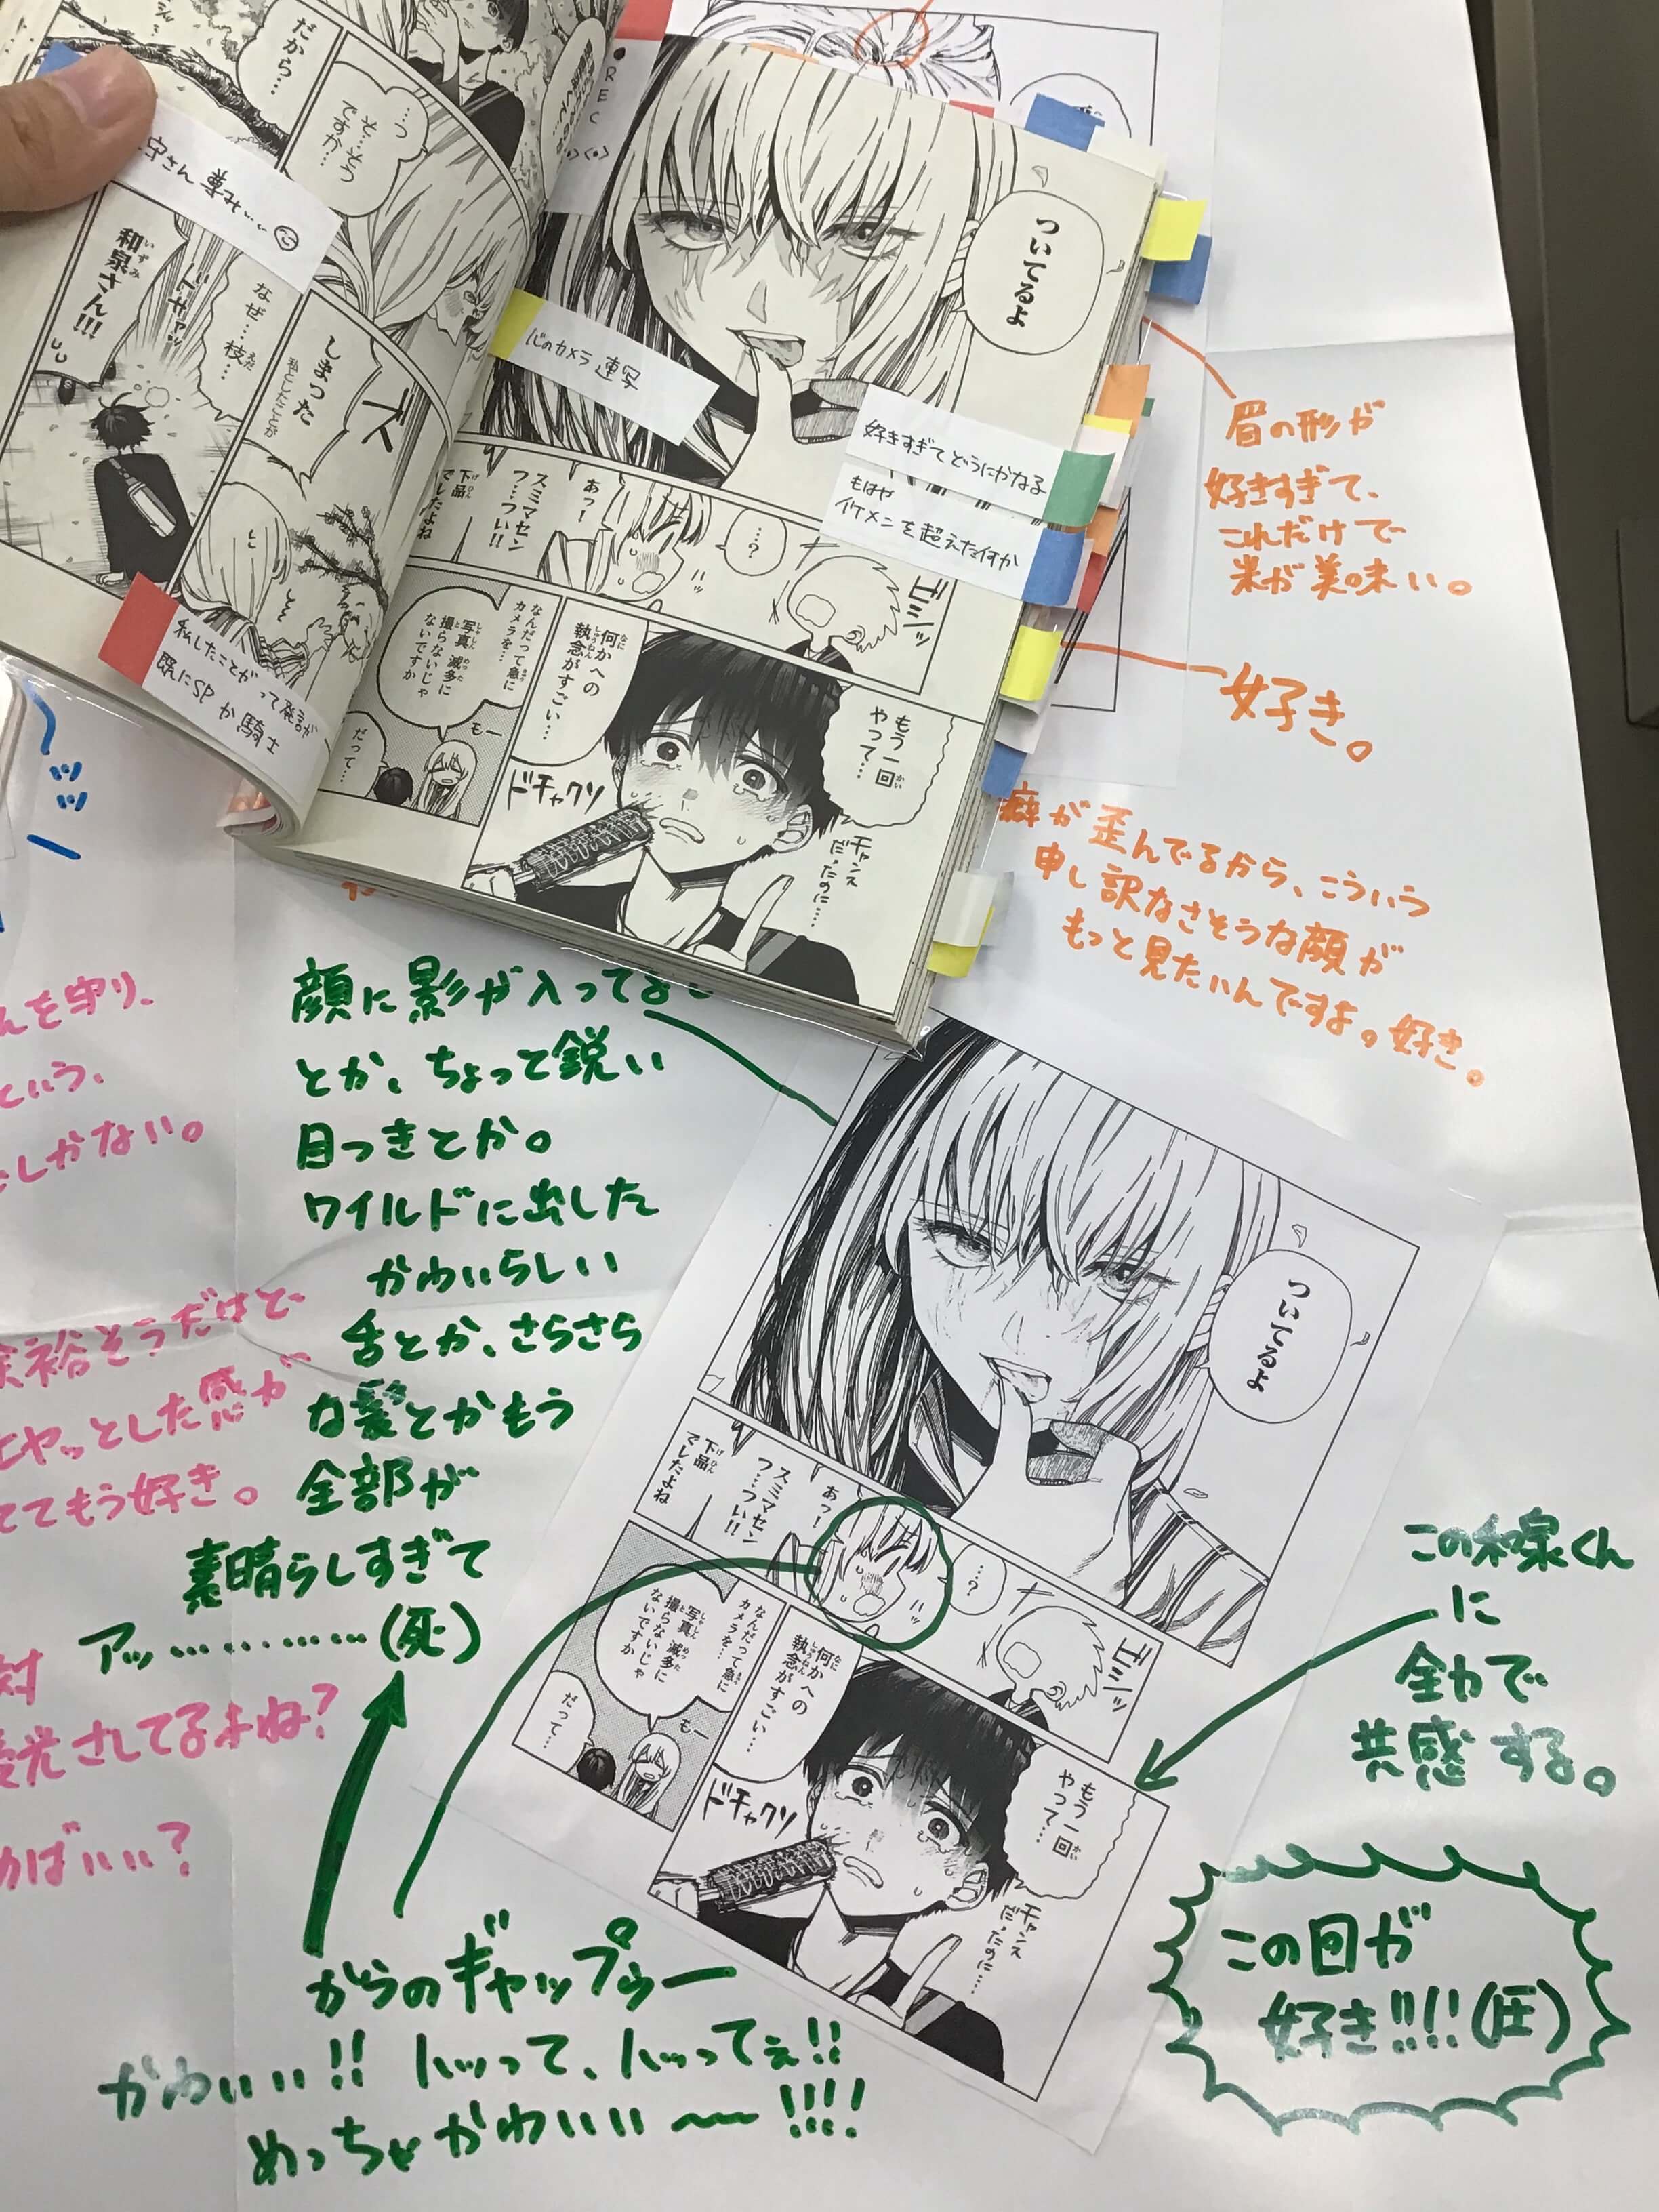 だから…
…っ
そ…そう
ですか…
尊みぃぃ
和泉さん!!!
いずみ
ドサッ
なぜ…枝…
えだ
ズ
しまった
私としたことが
私としたことがって発言が
既にSPか騎士
REC
ついてるよ
心のカメラ連写
好きすぎてどうにかなる
もはや
イケメンを超えた何か
あっ!
スミマセン
つ…つい!!
下品
げひん
でしたよね
…?
ゴシッ
なんだって急に
カメラを…
写真滅多に
しゃしん めった
撮らないじゃ
と
ないですか
もー
だって…
何かへの
なに
執念がすごい…
しゅうねん
もう一回
かい
やって…
ドチャクソ
チャンス
だったのに…
眉の形が
好きすぎて、
これだけで
米が美味い。
好き。
癖が歪んでるから、こういう
申し訳なさそうな顔が
もっと見たいんですよ。好き。
んを守り、
という、
しかない。
余裕そうだけど
ヒヤッとした感が
ててもう好き。
対
光されてるよね?
めばいい?
顔に影が入ってる
とか、ちょって鋭い
目つきとか。
ワイルドに出した
かわいらしい
舌とか、さらさら
な髪とかもう
全部が
素晴らしすぎて
アッ…………(死)
ついてるよ
あっ!
スミマセン
つ…つい!!
下品
げひん
でしたよね
…?
ゴシッ
なんだって急に
カメラを…
写真滅多に
しゃしん めった
撮らないじゃ
と
ないですか
もー
だって…
何かへの
なに
執念がすごい…
しゅうねん
もう一回
かい
やって…
ドチャクソ
チャンス
だったのに…
この和泉くん
に
全力で
共感する。
この回が
好き!!!!(圧)
からのギャップゥー
かわいい!! ハッって、ハッってぇ!!
めっちゃかわいい〜!!!!